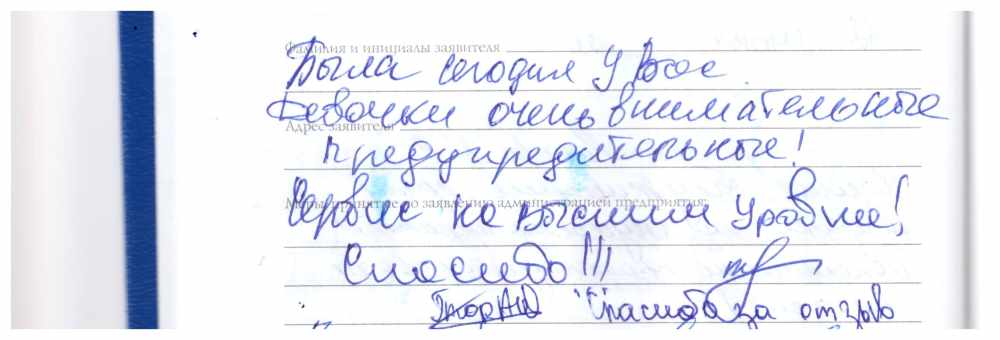 Фамилия и инициалы заявителя
Была сегодня у Вас.
Девочки очень внимательные
Адрес заявителя
предупредительные!
Меры, принятые по заявлению администрацией предприятия:
Сервис на высшем уровне!
Спасибо!!!
"Спасибо за отзыв